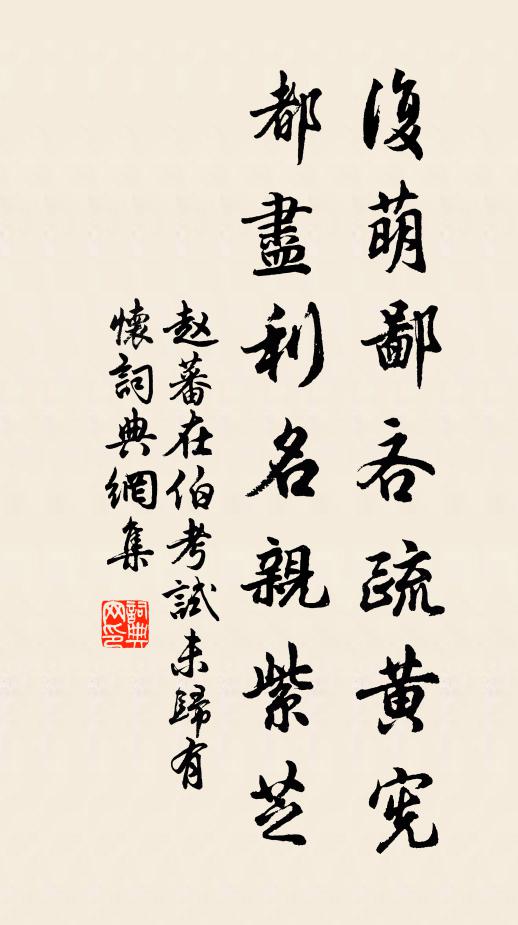 復萌鄙吝疏黄宪
都盡利名親紫芝
赵蕃在伯考試未歸有
懷詞典網集
詞典
网印